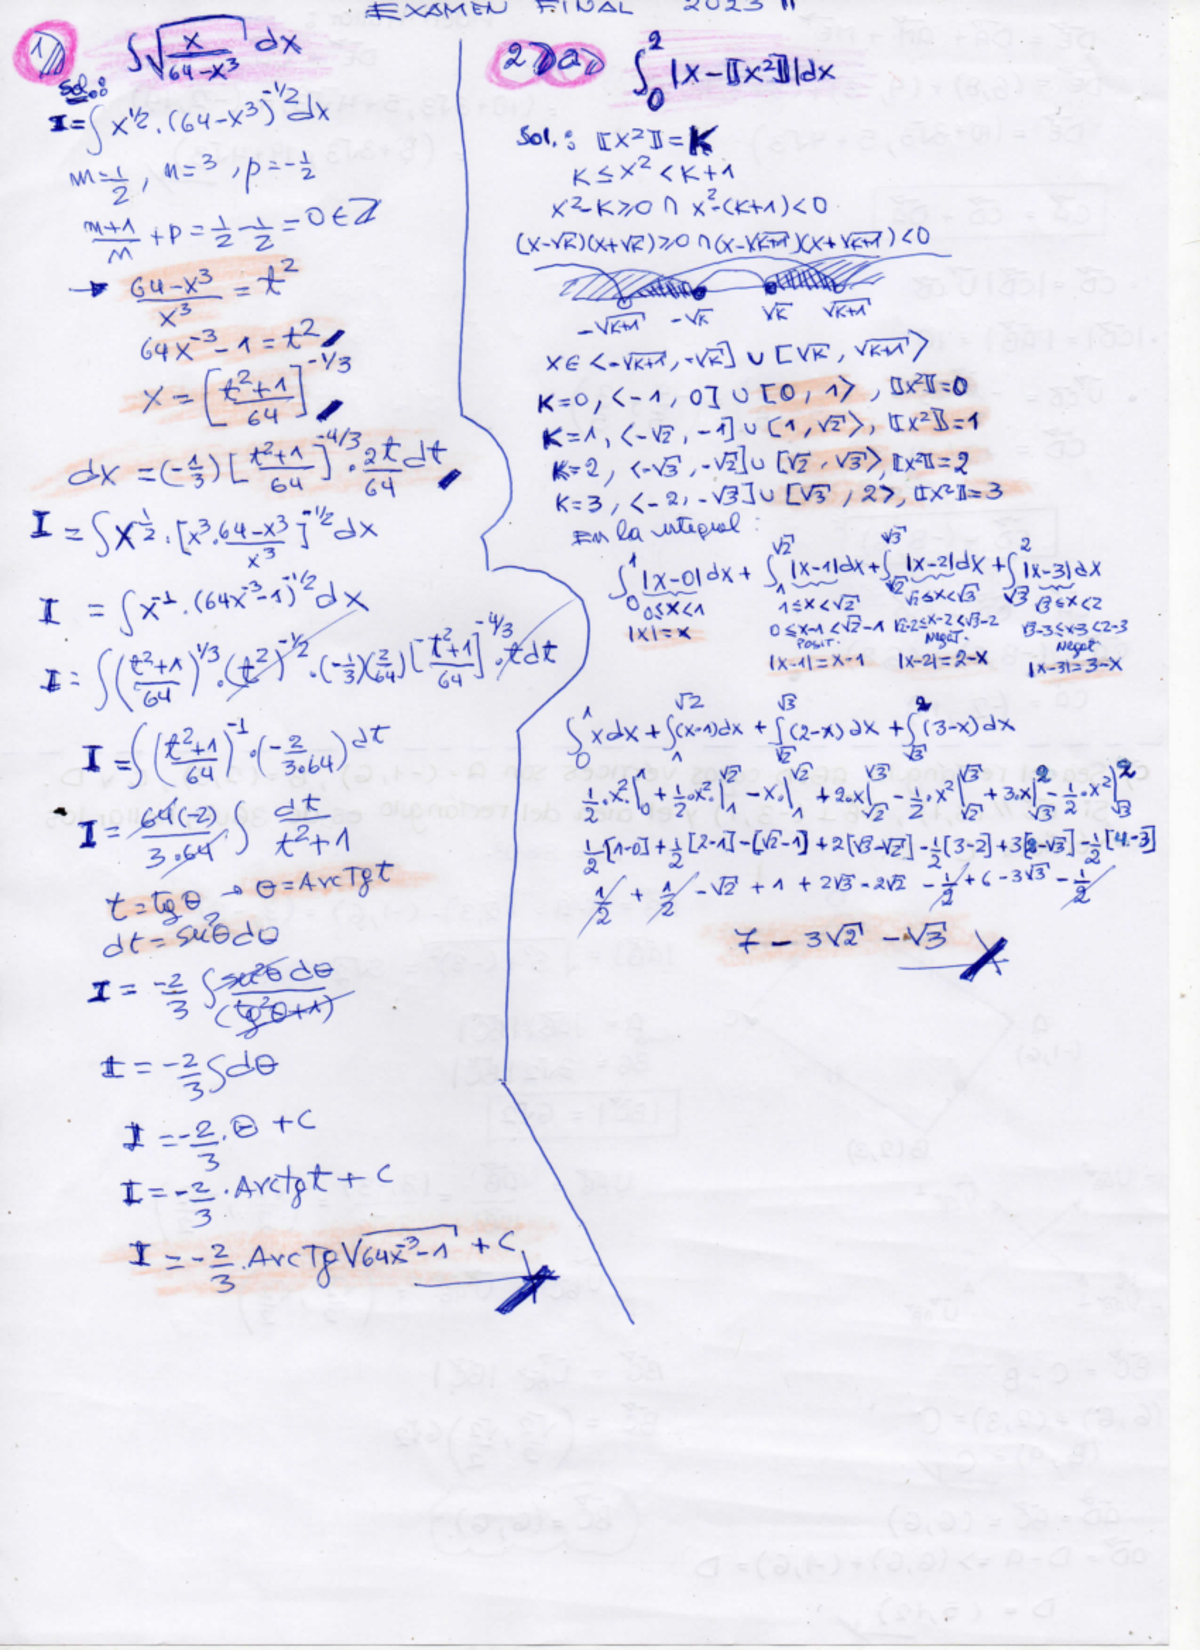 EXAMEN FINAL 2023 II
1) ∫√(x/(64-x³)) dx
Sol.:
I = ∫x^(1/2).(64-x³)^(-1/2) dx
m=1/2, n=3, p=-1/2
(m+1)/n + p = 1/2 - 1/2 = 0 ∈ Z
→ (64-x³)/x³ = t²
64x⁻³ - 1 = t²
x = [(t²+1)/64]^(-1/3)
dx = (-1/3)[(t²+1)/64]^(-4/3) . 2t/64 dt
I = ∫x^(1/2).[x³.(64-x³)/x³]^(-1/2) dx
I = ∫x⁻¹.(64x⁻³-1)^(-1/2) dx
I = ∫((t²+1)/64)^(1/3).(t²)^(-1/2).(-1/3)(2/64)[(t²+1)/64]^(-4/3).t dt
I = ∫((t²+1)/64)⁻¹.(-2/(3.64)) dt
I = 64(-2)/(3.64) ∫ dt/(t²+1)
t = tgθ → θ = ArcTg t
dt = sec²θ dθ
I = -2/3 ∫ sec²θ dθ/(tg²θ+1)
I = -2/3 ∫dθ
I = -2/3.θ + C
I = -2/3.Arctg t + C
I = -2/3.ArcTg√(64x⁻³-1) + C
2) a) ∫₀² |x-⟦x²⟧|dx
Sol.: ⟦x²⟧=K
K ≤ x² < K+1
x²-K≥0 ∩ x²-(K+1)<0
(x-√K)(x+√K)≥0 ∩ (x-√(K+1))(x+√(K+1))<0
-√(K+1) -√K √K √(K+1)
x ∈ <-√(K+1), -√K] ∪ [√K, √(K+1)>
K=0, <-1, 0] ∪ [0, 1>, ⟦x²⟧=0
K=1, <-√2, -1] ∪ [1, √2>, ⟦x²⟧=1
K=2, <-√3, -√2] ∪ [√2, √3>, ⟦x²⟧=2
K=3, <-2, -√3] ∪ [√3, 2>, ⟦x²⟧=3
En la integral:
∫₀¹ |x-0|dx + ∫₁^√2 |x-1|dx + ∫_√2^√3 |x-2|dx + ∫_√3^2 |x-3|dx
0≤x<1 1≤x<√2 √2≤x<√3 √3≤x<2
|x|=x 0≤x-1<√2-1 √2-2≤x-2<√3-2 √3-3≤x-3<2-3
Posit. Negat. Negat
|x-1|=x-1 |x-2|=2-x |x-3|=3-x
∫₀¹ x dx + ∫₁^√2 (x-1)dx + ∫_√2^√3 (2-x)dx + ∫_√3^2 (3-x)dx
1/2.x²|₀¹ + 1/2.x²|₁^√2 - x.|₁^√2 + 2.x|_√2^√3 - 1/2.x²|_√2^√3 + 3.x|_√3^2 - 1/2.x²|_√3^2
1/2[1-0]+1/2[2-1]-[√2-1]+2[√3-√2]-1/2[3-2]+3[2-√3]-1/2[4-3]
1/2 + 1/2 - √2 + 1 + 2√3 - 2√2 - 1/2 + 6 - 3√3 - 1/2
7 - 3√2 - √3